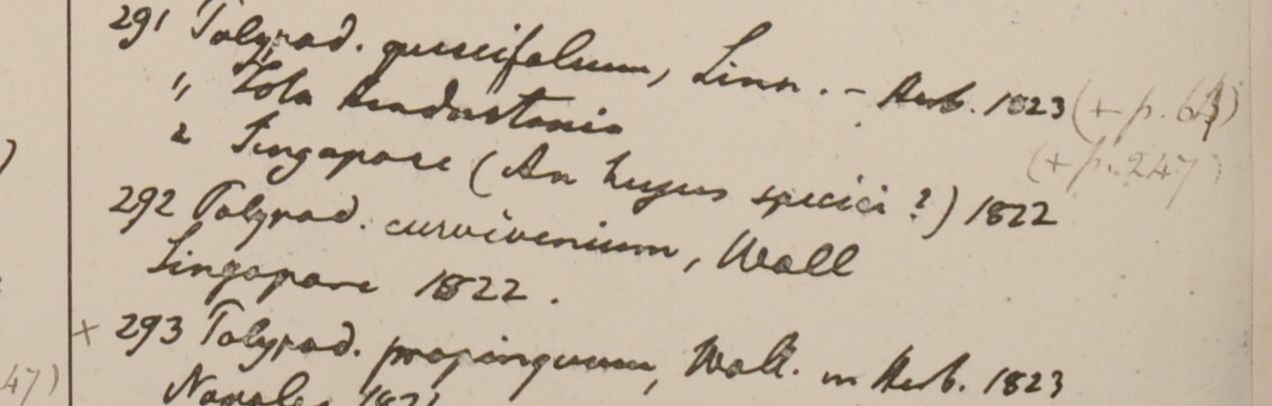 291 Polypod. quercifolium, Linn. - Herb. 1823 (+ p. 64)
" Tota Hindustania
2 Singapore (An hujus speciei ?) 1822 (+ p. 247)
292 Polypod. curvivenium, Wall
Singapore 1822.
+ 293 Polypod. propinquum, Wall. in Herb. 1823
47) Napalea 1821